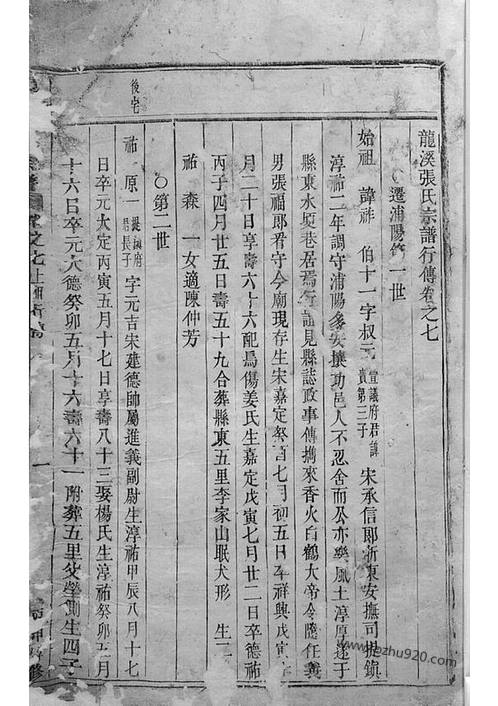 龍溪張氏宗譜行傳卷之七
○遷浦陽第一世
始祖 諱祚 伯十一字叔元 宣議府君諱賁第三子 宋承信郎浙東安撫司提鎮
淳祐二年調守浦陽多安攘功邑人不忍舍而公亦樂風土淳厚遂于
縣東水埂巷居焉行誼見縣誌政事傳攜來香火白鶴大帝令隨任義
男張福郎看守今廟現存生宋嘉定癸酉七月初五日卒祥興戊寅
月二十日享壽六十六配烏傷姜氏生嘉定戊寅七月廿二日卒德祐
丙子四月廿五日壽五十九合葬縣東五里李家山眠犬形 生二
祐 森 一女適陳仲芳
○第二世
後宅
祐 原一 字元吉宋建德帥屬進義副尉生淳祐甲辰八月十七
日卒元大定丙寅五月十七日享壽八十三娶楊氏生淳祐癸卯五月
十六日卒元大德癸卯五月十六壽六十一附葬五里父塋側生四子
修
pu920.com